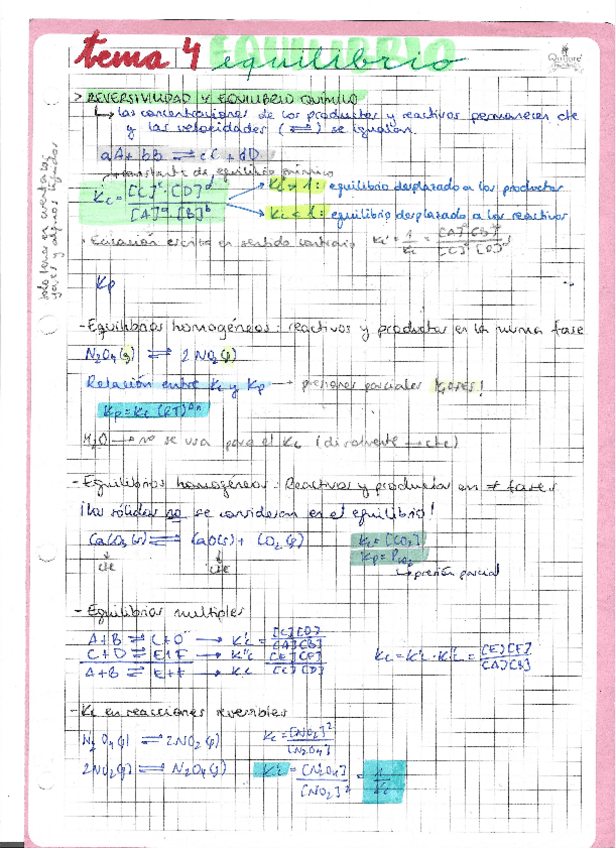 tema 4 EQUILIBRIO
equilibrio
> REVERSIVILIDAD Y EQUILIBRIO QUÍMICO
↳ las concentraciones de los productos y reactivos permanecen cte
y las velocidades (⇌) se igualan.
aA + bB ⇌ cC + dD
constante de equilibrio químico
Kc = [C]^c · [D]^d / [A]^a · [B]^b
Kc > 1: equilibrio desplazado a los productos
Kc < 1: equilibrio desplazado a los reactivos
· Ecuación escrita en sentido contrario Kc' = 1/Kc = [A]^a [B]^b / [C]^c [D]^d
solo tener en cuenta
gases y líquidos
Kp
- Equilibrios homogéneos: reactivos y productos en la misma fase
N2O4 (g) ⇌ 2 NO2 (g)
Relación entre Kc y Kp → presiones parciales ¡GASES!
Kp = Kc (RT)^Δn
H2O → no se usa para el Kc (disolvente → cte)
- Equilibrios homogéneos: Reactivos y productos en ≠ fases
¡Los sólidos no se consideran en el equilibrio!
CaCO3 (s) ⇌ CaO (s) + CO2 (g)
Kc = [CO2]
Kp = PCO2
↳ presión parcial
cte cte
- Equilibrios multiples
A + B ⇌ C + D → K'c = [C][D] / [A][B]
C + D ⇌ E + F → K''c = [E][F] / [C][D]
A + B ⇌ E + F → Kc
Kc = K'c · K''c = [E][F] / [A][B]
- Kc en reacciones reversibles
N2O4 (g) ⇌ 2NO2 (g) Kc = [NO2]^2 / [N2O4]
2NO2 (g) ⇌ N2O4 (g) K'c = [N2O4] / [NO2]^2 = 1/Kc